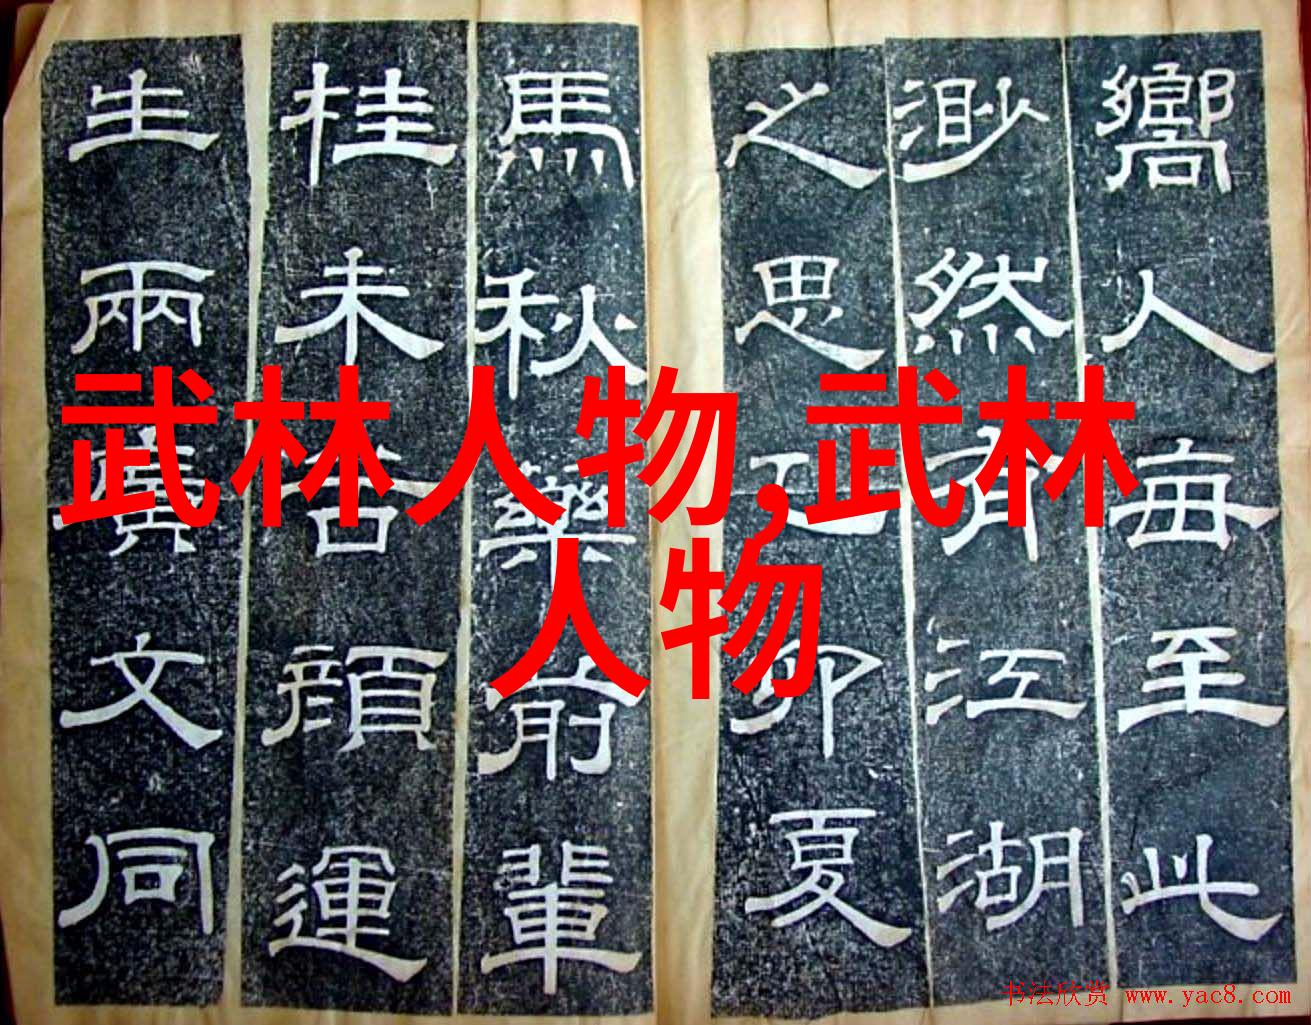 嚮人每至此
渺然有江湖
之思乙卯夏
馬秋藥前輩
桂未谷顏運
生兩廣文同
武林人物,武林
人物
书法欣赏 www.yac8.com